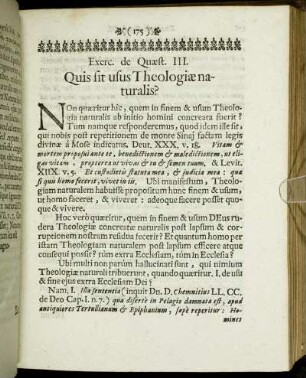 (175)
Exerc. de Quæst. III.
Quis sit usus Theologiæ na-
turalis?
NOn quæritur hîc, quem in finem & usum Theolo-
gia naturalis ab initio homini concreata fuerit?
Tum nomque responderemus, quod idem ille sit,
qui nobis post repetitionem de monte Sinaj factam legis
divinæ â Mose indicatur, Deut. XXX. v. 18. Vitam &
mortem proposui ante te, benedictionem & maledictionem, ut eli-
gas vitam, præterea ut vivas & tu & semen tuum, & Levit.
XIIX. v. 5. Et custoditis statuta mea, & judicia mea: qua
si quis homo fecerit, vivet in iis. Ubi manifestum, Theolo-
giam naturalem habuisse propositum hunc finem & usum,
ut homo faceret, & viveret: adeoque facere posset quo-
que & vivere.
Hoc verò quæritur, quem in finem & usum DEus ru-
dera Theologiæ concreatæ naturalis post lapsum & cor-
ruptionem nostram residua fecerit? Et quantum homo per
istam Theologiam naturalem post lapsum efficere atque
consequi possit? tùm extra Ecclesiam, tùm in Ecclesia?
Ubi multi non parùm hallucinati sunt, qui nimium
Theologiæ naturali tribuerunt, quando quæritur, I. de usu
& fine ejus extra Ecclesiam Dei?
Nam, I. Illa sententia (inquit Dn. D. Chemnitius LL. CC.
de Deo Cap. I. n. 7.) qua disertè in Pelagio damnata est, apud
antiquiores Tertullianum & Epiphanium, sæpè reperitur: Ho-
mines